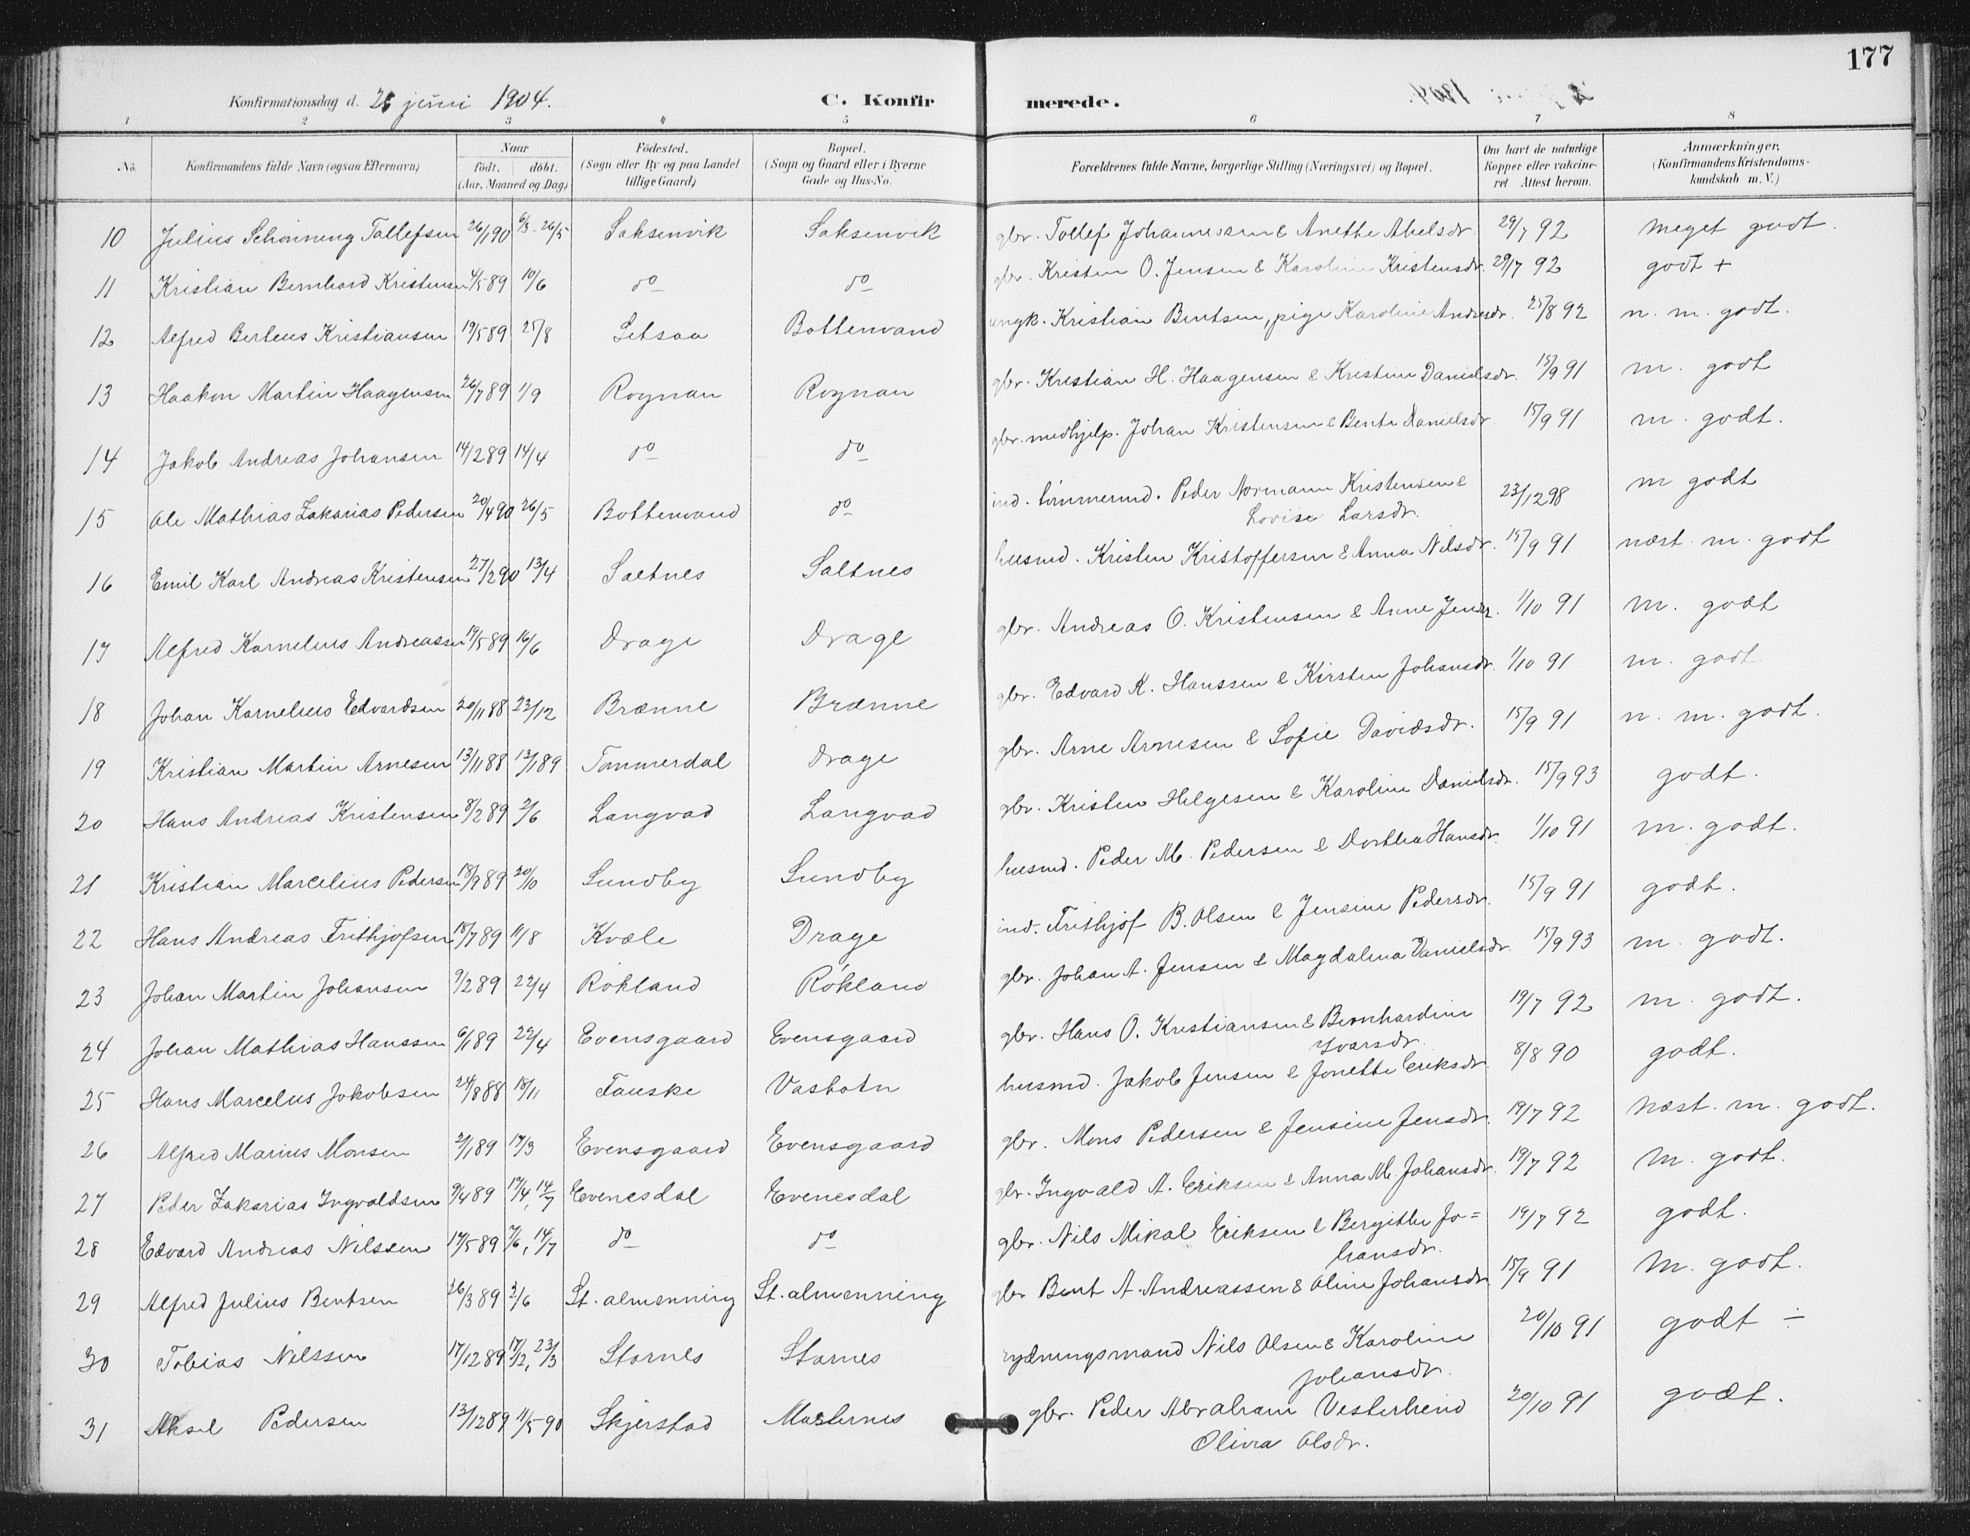 177
Konfirmationsdag d. 26 juni 1904. C. Konfirmerede.
1 2 3 4 5 6 7 8
No. Konfirmandens fulde Navn (ogsaa Efternavn) Naar født. døbt. (Aar, Maaned og Dag) Fødested. (Sogn eller By og paa Landet tillige Gaard) Bopæl. (Sogn og Gaard eller i Byerne Gade og Hus-No. Forældrenes fulde Navne, borgerlige Stilling (Næringsvei) og Bopæl. Om havt de naturlige Kopper eller vakcineret Attest herom. Anmærkninger, (Konfirmandens Kristendomskundskab m. V.)
10 Julius Schønning Tollefsen 26/1 90 6/3 - 26/5 Saksenvik Saksenvik gbr. Tollef Johannessen & Anette Abelsdr. 29/7 92 meget godt.
11 Kristian Bernhard Kristensen 4/5 89 10/6 do do gbr. Kristen O. Jensen & Karoline Kristensdr. 29/7 92 godt +
12 Alfred Berteus Kristiansen 19/5 89 25/8 Setsaa Bottenvand ungk. Kristian Bentsen, pige Karoline Andrsdr. 25/8 92 n. m. godt.
13 Haakon Martin Haagensen 26/7 89 1/9 Rognan Rognan gbr. Kristian H. Haagensen & Kristine Danielsdr. 15/9 91 m. godt
14 Jakob Andreas Johansen 14/2 89 14/4 do do gbr. medhjelp. Johan Kristensen & Bente Danielsdr 15/9 91 m. godt.
15 Ole Mathias Zakarias Pedersen 20/4 90 26/5 Bottenvand do ind. tømmermd. Peder Normann Kristensen & Lovise Larsdr. 23/12 98 m godt
16 Emil Karl Andreas Kristensen 27/2 90 13/4 Saltnes Saltnes husmd. Kristen Kristoffersen & Anna Nilsdr. 15/9 91 næst. m. godt
17 Alfred Kornelius Andreassen 19/5 89 16/6 Drage Drage gbr. Andreas O. Kristensen & Anne Jensdr 1/10 91 m. godt
18 Johan Kornelius Edvardsen 20/11 88 23/12 Brænne Brænne gbr. Edvard K. Hanssen & Kirsten Johansdr. 1/10 91 m. godt
19 Kristian Martin Arnesen 13/11 88 13/1 89 Tømmerdal Drage gbr. Arne Arnesen & Sofie Davidsdr. 15/9 91 n. m. godt.
20 Hans Andreas Kristensen 8/2 89 2/6 Langvad Langvad gbr. Kristen Helgesen & Karoline Danielsdr. 15/9 93 godt.
21 Kristian Marcelius Pedersen 18/9 89 20/10 Sundby Sundby husmd. Peder M. Pedersen & Dorthea Hansdr. 1/10 91 m. godt.
22 Hans Andreas Frithjofsen 18/7 89 11/8 Kvæle Drage ind. Frithjof B. Olsen & Jensine Pedersdr. 15/9 91 godt.
23 Johan Martin Johansen 9/2 89 22/4 Røkland Røkland gbr. Johan A. Jensen & Magdalena Danielsdr. 15/9 93 m. godt.
24 Johan Mathias Hanssen 6/1 89 22/4 Evensgaard Evensgaard gbr. Hans O. Kristiansen & Bernhardine Ivarsdr. 19/7 92 m. godt.
25 Hans Marcelius Jakobsen 24/8 88 18/11 Fauske Vasbotn husmd. Jakob Jensen & Jonette Eriksdr. 8/8 90 godt.
26 Alfred Marius Monsen 2/1 89 17/3 Evensgaard Evensgaard gbr. Mons Pedersen & Jensine Jensdr. 19/7 92 næst. m. godt.
27 Peder Zakarias Ingvaldsen 9/4 89 17/4, 14/7 Evenesdal Evenesdal gbr. Ingvald A. Eriksen & Anna M. Johansdr. 19/7 92 m. godt.
28 Edvard Andreas Nilssen 17/5 89 7/6, 14/7 do do gbr. Nils Mikal Eriksen & Bergitte Jo=hansdr. 19/7 92 godt.
29 Alfred Julius Bentsen 26/3 89 2/6 St. almenning St. almenning gbr Bent A. Andreassen & Oline Johansdr. 15/9 91 m. godt.
30 Tobias Nilssen 17/12 89 17/12, 23/3 Stornes Stornes rydningsmand Nils Olsen & Karoline Johansdr. 20/10 91 godt ÷
31 Aksel Pedersen 13/12 89 11/5 90 Skjerstad gbr. Peder Abraham Olivia Olsdr. 20/10 91 godt.